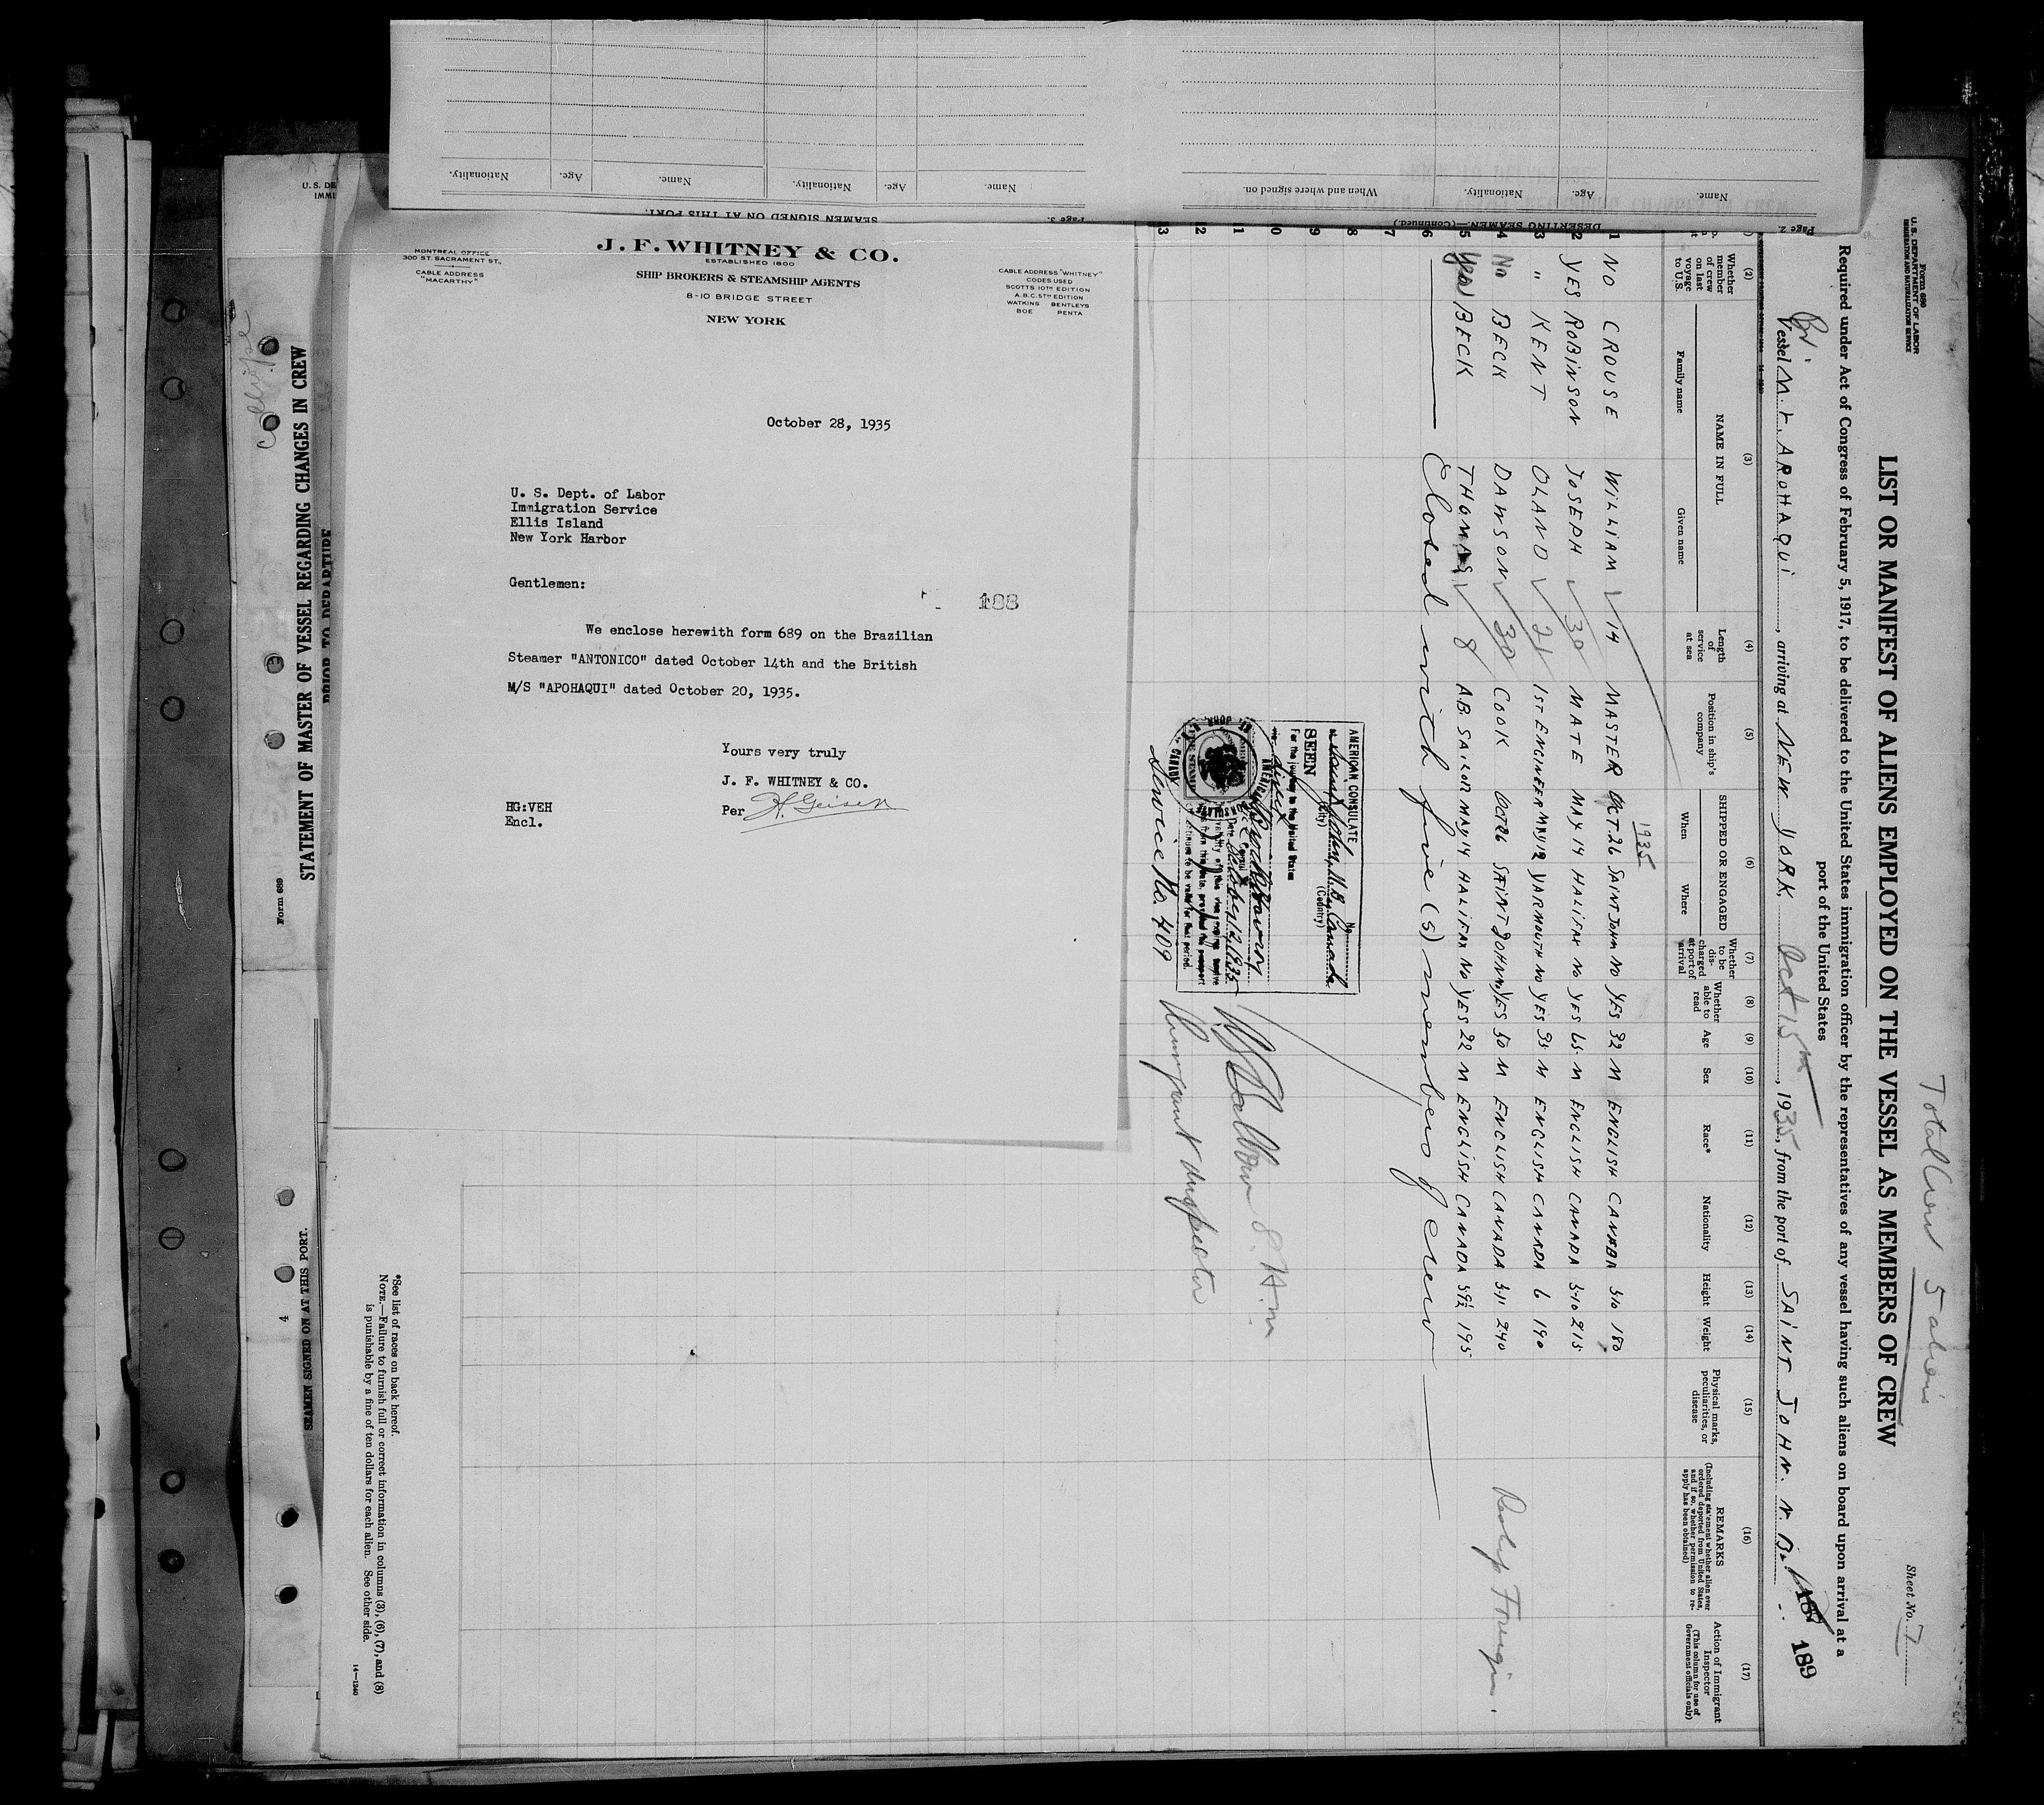 Name.
Age.
Nationality.
Name.
Age.
Nationality.
Name.
Age.
Nationality.
When and where signed on.
Page 3.
SEAMEN SIGNED ON AT THIS PORT.
Page 2.
DESERTING SEAMEN.—(Continued.)
MONTREAL OFFICE
300 ST. SACRAMENT ST.,
CABLE ADDRESS
"MACARTHY"
J. F. WHITNEY & CO.
ESTABLISHED 1800
SHIP BROKERS & STEAMSHIP AGENTS
8-10 BRIDGE STREET
NEW YORK
CABLE ADDRESS "WHITNEY"
CODES USED
SCOTTS 10TH EDITION
A.B.C. 5TH EDITION
WATKINS BENTLEYS
BOE PENTA
October 28, 1935
U. S. Dept. of Labor
Immigration Service
Ellis Island
New York Harbor
Gentlemen:
188
We enclose herewith form 689 on the Brazilian
Steamer "ANTONICO" dated October 14th and the British
M/S "APOHAQUI" dated October 20, 1935.
Yours very truly
J. F. WHITNEY & CO.
HG:VEH
Encl.
Per H. Geisen
U. S. DE
IMMI
STATEMENT OF MASTER OF VESSEL REGARDING CHANGES IN CREW
PRIOR TO DEPARTURE
Form 689
SEAMEN SIGNED ON AT THIS PORT.
4
Form 680
U.S. DEPARTMENT OF LABOR
IMMIGRATION AND NATURALIZATION SERVICE
Total Crew 5 aliens
Sheet No. 7
LIST OR MANIFEST OF ALIENS EMPLOYED ON THE VESSEL AS MEMBERS OF CREW
Required under Act of Congress of February 5, 1917, to be delivered to the United States immigration officer by the representatives of any vessel having such aliens on board upon arrival at a
port of the United States
Br.
Vessel M.V. APOHAQUI, arriving at NEW YORK Oct 15th, 1935, from the port of SAINT JOHN. N. B.
187 189
(2) (3) (4) (5) (6) (7) (8) (9) (10) (11) (12) (13) (14) (15) (16) (17)
Whether member of crew on last voyage to U.S.
NAME IN FULL
Family name
Given name
Length of service at sea
Position in ship's company
SHIPPED OR ENGAGED
When
Where
Whether to be discharged at port of arrival
Whether able to read
Age
Sex
Race*
Nationality
Height
Weight
Physical marks, peculiarities, or disease
REMARKS
(Including statement whether alien ever ordered deported from United States, and if so, whether permission to reapply has been obtained)
Action of Immigrant Inspector
(This column for use of Government officials only)
1935
1 NO CROUSE WILLIAM 14 MASTER OCT.26 SAINT JOHN NO YES 32 M ENGLISH CANADA 5·10 180
2 YES ROBINSON JOSEPH 30 MATE MAY 14 HALIFAX NO YES 65 M ENGLISH CANADA 5·10 215
3 " KENT OLAND 21 1ST ENGINEER MAY 12 YARMOUTH NO YES 35 M ENGLISH CANADA 6 190
4 No BECK DAWSON 30 COOK OCT 26 SAINT JOHN YES 50 M ENGLISH CANADA 5·11 240
5 Yes BECK THOMAS 8 A.B. SAILOR MAY 14 HALIFAX NO YES 22 M ENGLISH CANADA 5 9½ 195
6 Closed with five (5) members of crew
7
8
9
10
11
12
13
AMERICAN CONSULATE
at Saint John, N.B., Canada
(City) (Country)
SEEN
No.
For the journey to the United States
direct
October 12, 1935
Service No. 409
Immigrant Inspector
*See list of races on back hereof.
NOTE.—Failure to furnish full or correct information in columns (3), (6), (7), and (8)
is punishable by a fine of ten dollars for each alien. See other side.
14—1240